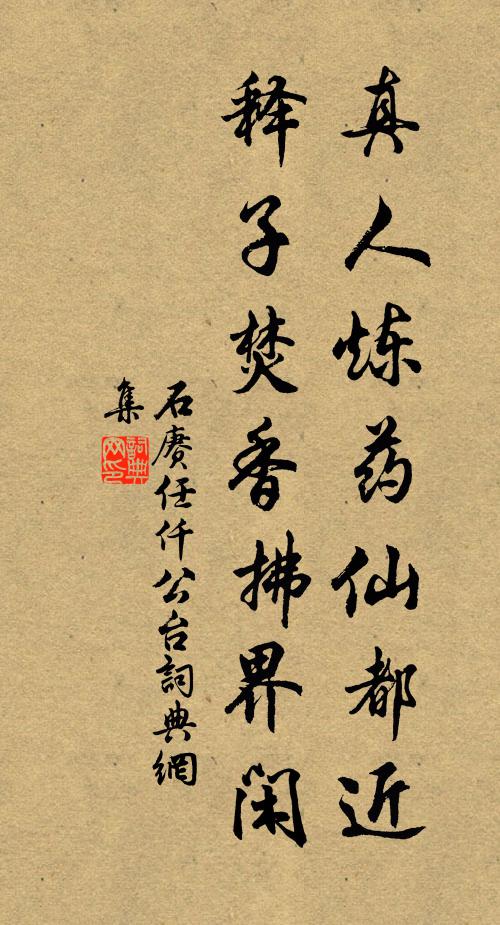 真人炼药仙都近
释子焚香拂界闲
石赓任仟公台詞典網
集
詞典
网印